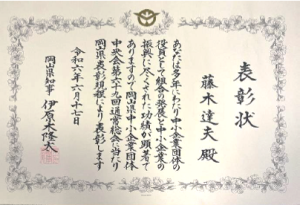 表彰状
藤木達夫 殿
あなたは多年にわたり中小企業団体の
役員として組合の発展と中小企業の
振興に尽くされた功績が顕著で
ありますので岡山県中小企業団体
中央会第六十九回通常総会に当たり
岡山県表彰規程により表彰します
令和六年六月十七日
岡山県知事 伊原木隆太